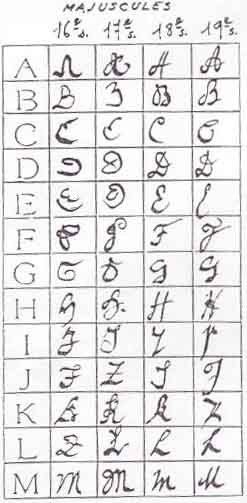 MAJUSCULES
16e s. 17e s. 18e s. 19e s.
A A A A A
B B B B B
C C C C C
D D D D D
E E E E E
F F F F F
G G G G G
H H H H H
I I I I I
J J J J J
K K K K K
L L L L L
M M M M M